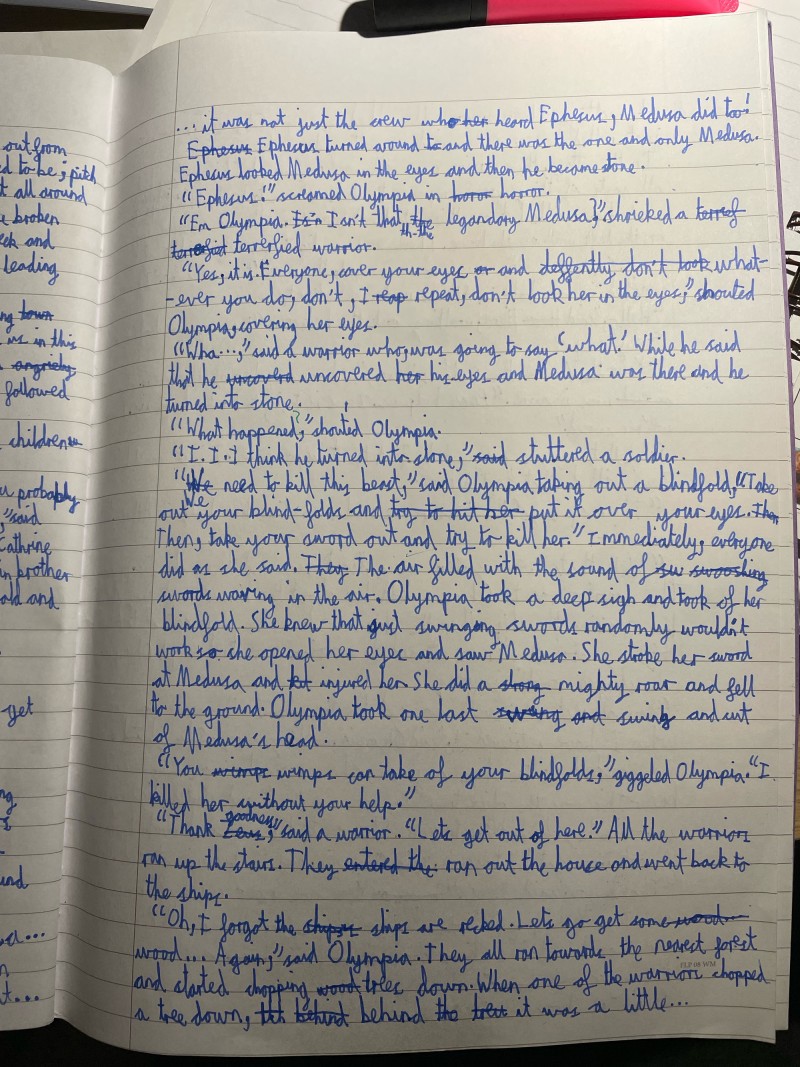 out from
ed to be; pitch
t all around
e broken
eck and
leading
ng town
us in this
angriely
followed
children
u probably
," said
Cathrine
in brother
old and
get
ng
und
...
t...
...it was not just the crew who her heard Ephesus, Medusa did too!
Ephesus Ephesus turned around to and there was the one and only Medusa.
Ephesus looked Medusa in the eyes and then he became stone.
"Ephesus!" screamed Olympia in horor horror.
"Em Olympia. Isn Isn't that the legendary Medusa?" shrieked a terref
th-the
terrefied terrefied warrior.
"Yes, it is. Everyone, cover your eyes or and deffently don't look what-
-ever you do, don't, I reap repeat, don't look her in the eyes," shouted
Olympia, covering her eyes.
"Wha...," said a warrior who, was going to say 'what.' While he said
that he uncoverd uncovered her his eyes and Medusa was there and he
turned into stone.
"What happened," shouted Olympia.
"I.I.I think he turned into stone," said stuttered a soldier.
"We need to kill this beast," said Olympia taking out a blindfold, "Take
We
out your blind-folds and try to hit her put it over your eyes. Then
Then, take your sword out and try to kill her." Immediately, everyone
did as she said. They The air filled with the sound of sw swooshing
swords waving in the air. Olympia took a deep sigh and took of her
blindfold. She knew that just swinging swords randomly wouldn't
work so she opened her eyes and saw Medusa. She stroke her sword
at Medusa and hit injured her. She did a strong mighty roar and fell
to the ground. Olympia took one last swung and swing and cut
of Medusa's head.
"You wimps wimps can take of your blindfolds," giggeled Olympia. "I
killed her without your help."
goodness
"Thank Zeus," said a warrior. "Lets get out of here." All the warriors
ran up the stairs. They entered the ran out the house and went back to
the ships.
"Oh, I forgot the ships ships are recked. Lets go get some wood
wood... Again," said Olympia. They all ran towards the nearest forest
and started chopping wood trees down. When one of the warriors chopped
a tree down, behind behind the tree it was a little...